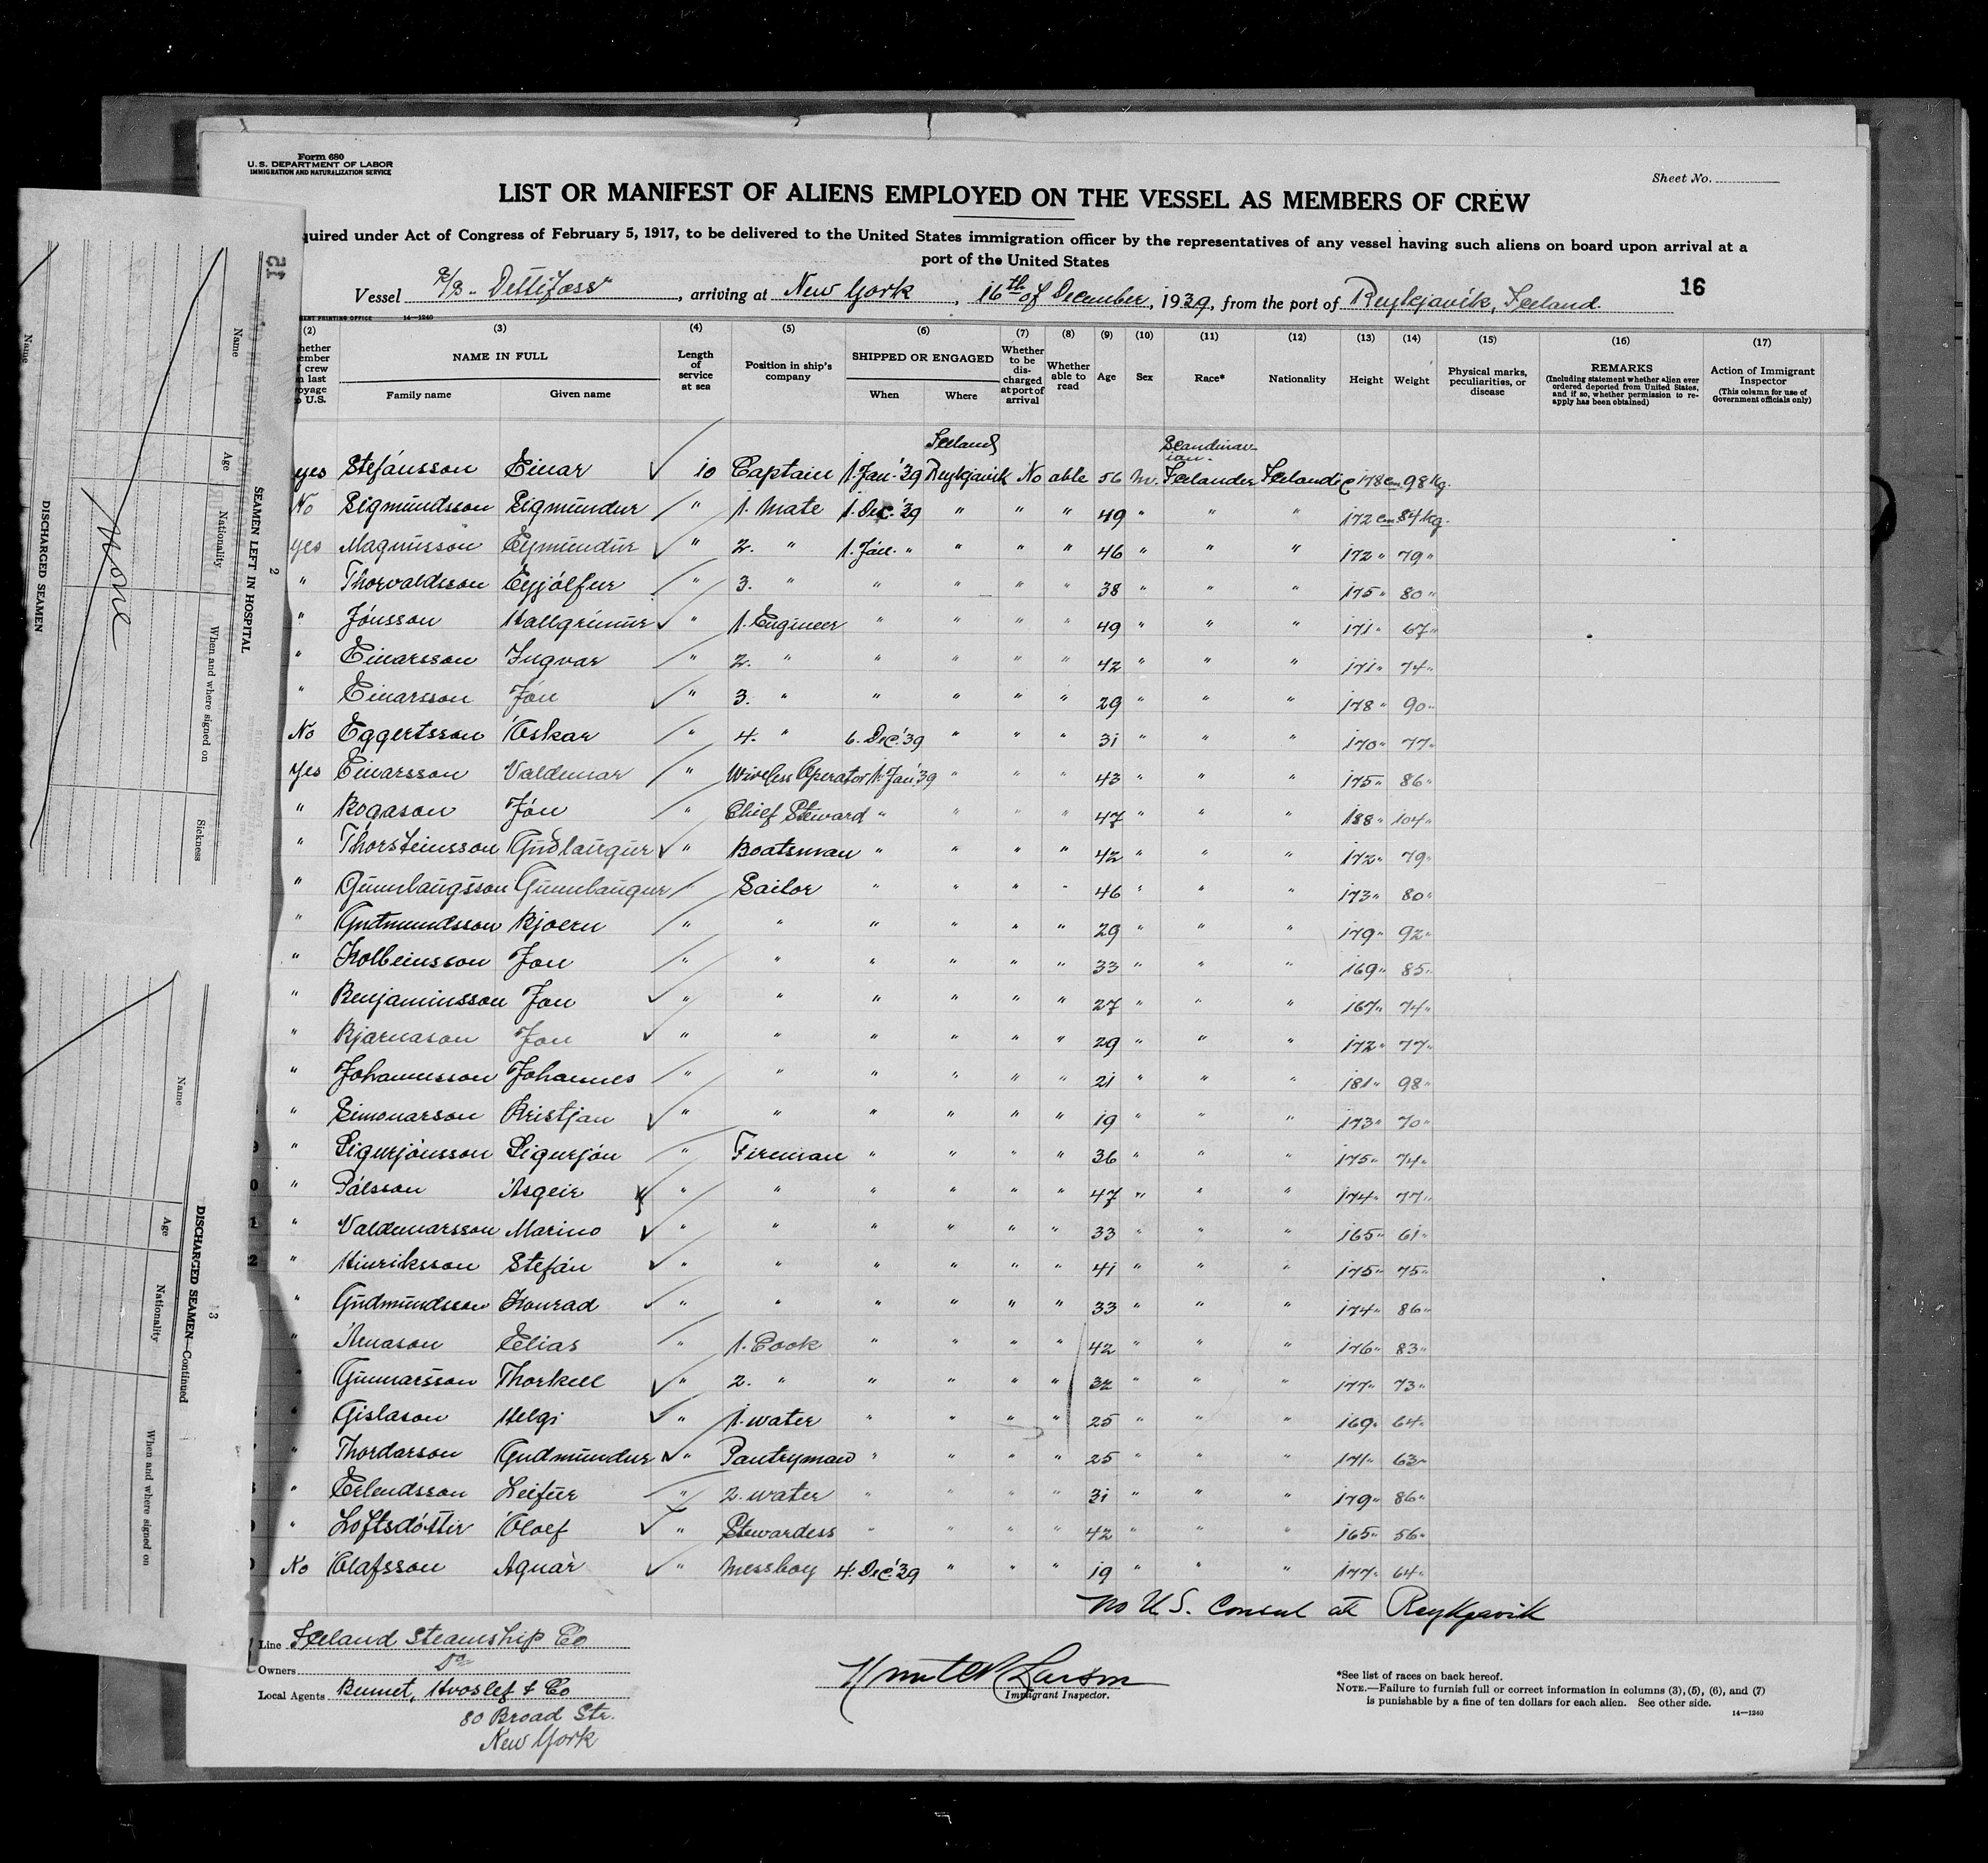 Form 680
U. S. DEPARTMENT OF LABOR
IMMIGRATION AND NATURALIZATION SERVICE
Sheet No.
LIST OR MANIFEST OF ALIENS EMPLOYED ON THE VESSEL AS MEMBERS OF CREW
quired under Act of Congress of February 5, 1917, to be delivered to the United States immigration officer by the representatives of any vessel having such aliens on board upon arrival at a
port of the United States
Vessel Dettifoss, arriving at New York, 16th of December, 1939, from the port of Reykjavik, Iceland.
16
MENT PRINTING OFFICE 14—1240
(2) (3) (4) (5) (6) (7) (8) (9) (10) (11) (12) (13) (14) (15) (16) (17)
hether ember f crew n last oyage o U.S. NAME IN FULL Family name Given name Length of service at sea Position in ship's company SHIPPED OR ENGAGED When Where Whether to be discharged at port of arrival Whether able to read Age Sex Race* Nationality Height Weight Physical marks, peculiarities, or disease REMARKS (Including statement whether alien ever ordered deported from United States, and if so, whether permission to reapply has been obtained) Action of Immigrant Inspector (This column for use of Government officials only)
Iceland Scandinavian.
yes Stefánsson Einar 10 Captain 1. Jan. '39 Reykjavik No able 56 m. Icelander Icelandic 178 cm 98 Kg.
No Sigmundsson Sigmundur " 1. Mate 1. Dec. '39 " " " 49 " " " 172 cm 84 kg.
yes Magnusson Eymundur " 2. " 1. Jan. " " " " 46 " " " 172 " 79 "
" Thorvaldsson Eyjólfur " 3. " " " " " 38 " " " 175 " 80 "
" Jónsson Hallgrimur " 1. Engineer " " " " 49 " " " 171 " 67 "
" Einarsson Ingvar " 2. " " " " " 42 " " " 171 " 74 "
" Einarsson Jón " 3. " " " " " 29 " " " 178 " 90 "
No Eggertsson Oskar " 4. " 6. Dec. '39 " " " 31 " " " 170 " 77 "
Yes Einarsson Valdemar " Wireless Operator 1. Jan '39 " " " 43 " " " 175 " 86 "
" Bogason Jón " Chief Steward " " " " 47 " " " 188 " 104 "
" Thorsteinsson Gudlaugur " Boatsman " " " " 42 " " " 172 " 79 "
" Gunnlaugsson Gunnlaugur " Sailor " " " " 46 " " " 173 " 80 "
" Gudmundsson Bjoern " " " " " " 29 " " " 179 " 92 "
" Kolbeinsson Jon " " " " " " 33 " " " 169 " 85 "
" Benjaminsson Jon " " " " " " 27 " " " 167 " 74 "
" Bjarnason Jon " " " " " " 29 " " " 172 " 77 "
" Johannesson Johannes " " " " " " 21 " " " 181 " 98 "
" Simonarson Kristjan " " " " " " 19 " " " 173 " 70 "
" Sigurjónsson Sigurjón " Fireman " " " " 36 " " " 175 " 74 "
" Pálsson Asgeir " " " " " " 47 " " " 174 " 77 "
" Valdemarsson Marino " " " " " " 33 " " " 165 " 61 "
" Hinriksson Stefán " " " " " " 41 " " " 175 " 75 "
" Gudmundsson Konrad " " " " " " 33 " " " 174 " 86 "
" Arnason Elias " 1. Cook " " " " 42 " " " 176 " 83 "
" Gunnarsson Thorkell " 2. " " " " " 32 " " " 177 " 73 "
" Gislason Helgi " 1. water " " " " 25 " " " 169 " 64 "
" Thordarson Gudmundur " Pantryman " " " " 25 " " " 171 " 63 "
" Erlendsson Leifur " 2. water " " " " 31 " " " 179 " 86 "
" Loftsdóttir Oloef " Stewardess " " " " 42 " " " 165 " 56 "
No Olafsson Agnar " Messboy 4. Dec. '39 " " " 19 " " " 177 " 64 "
No U.S. Consul at Reykjavik
Line Iceland Steamship Co
Owners Do
Local Agents Bennet, Hvoslef & Co
80 Broad Str.
New York
Larson
Immigrant Inspector.
*See list of races on back hereof.
NOTE.—Failure to furnish full or correct information in columns (3), (5), (6), and (7)
is punishable by a fine of ten dollars for each alien. See other side.
14—1240
15
SEAMEN LEFT IN HOSPITAL
2
Name Age Nationality When and where signed on Sickness
None
DISCHARGED SEAMEN
Name
3
DISCHARGED SEAMEN—Continued
Name Age Nationality When and where signed on